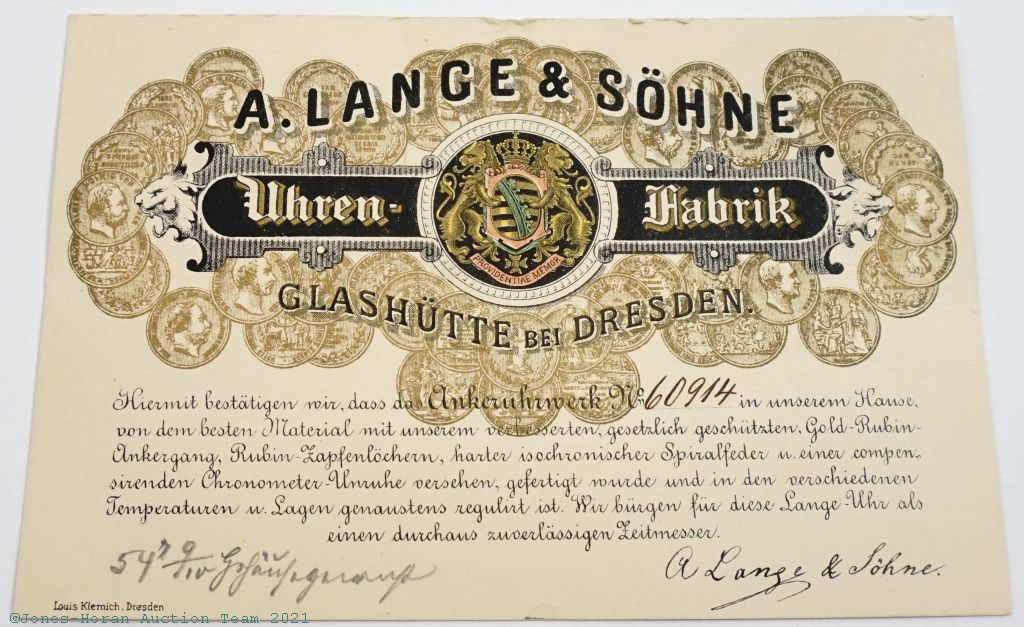 A. LANGE & SÖHNE
Uhren- Fabrik
PROVIDENTIAE MEMOR
GLASHÜTTE BEI DRESDEN.
Hiermit bestätigen wir, dass das Ankeruhrwerk No. 60914 in unserem Hause,
von dem besten Material mit unserem verbesserten, gesetzlich geschützten, Gold-Rubin-
Ankergang, Rubin-Zapfenlöchern, harter isochronischer Spiralfeder u. einer compen-
sirenden Chronometer-Unruhe versehen, gefertigt wurde und in den verschiedenen
Temperaturen u. Lagen genaustens regulirt ist. Wir bürgen für diese Lange-Uhr als
einen durchaus zuverlässigen Zeitmesser.
Gehäusegewicht
A Lange & Söhne.
Louis Klemich, Dresden
©Jones-Horan Auction Team 2021